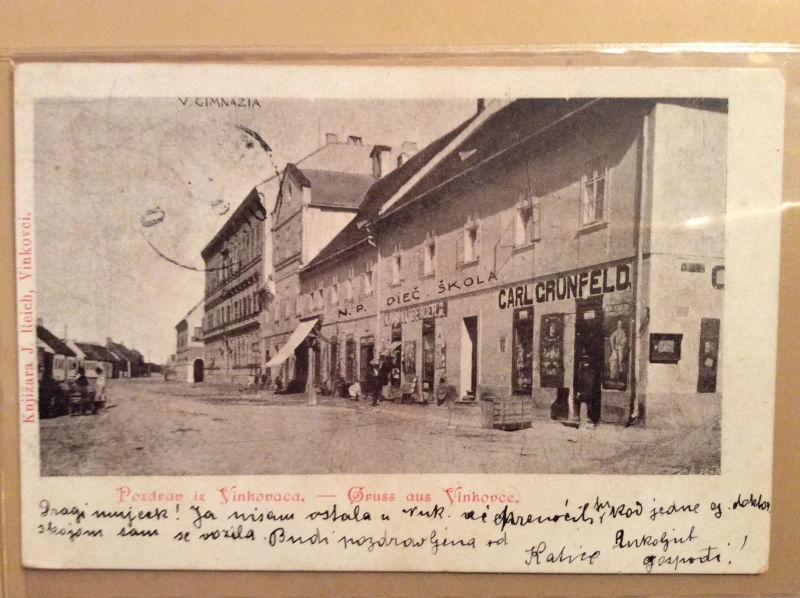 V. GIMNAZIA
N. P. DIEČ. ŠKOLA
CARL GRÜNFELD
Knjižara J. Reich, Vinkovci.
Pozdrav iz Vinkovaca. — Gruss aus Vinkovce.
Dragi ! Ja nisam ostala u Vuk. već prenoćila kod jedne g. doktor
s kojom sam se vozila. Budi pozdravljena od
Katice Rukoljub
gospodi!